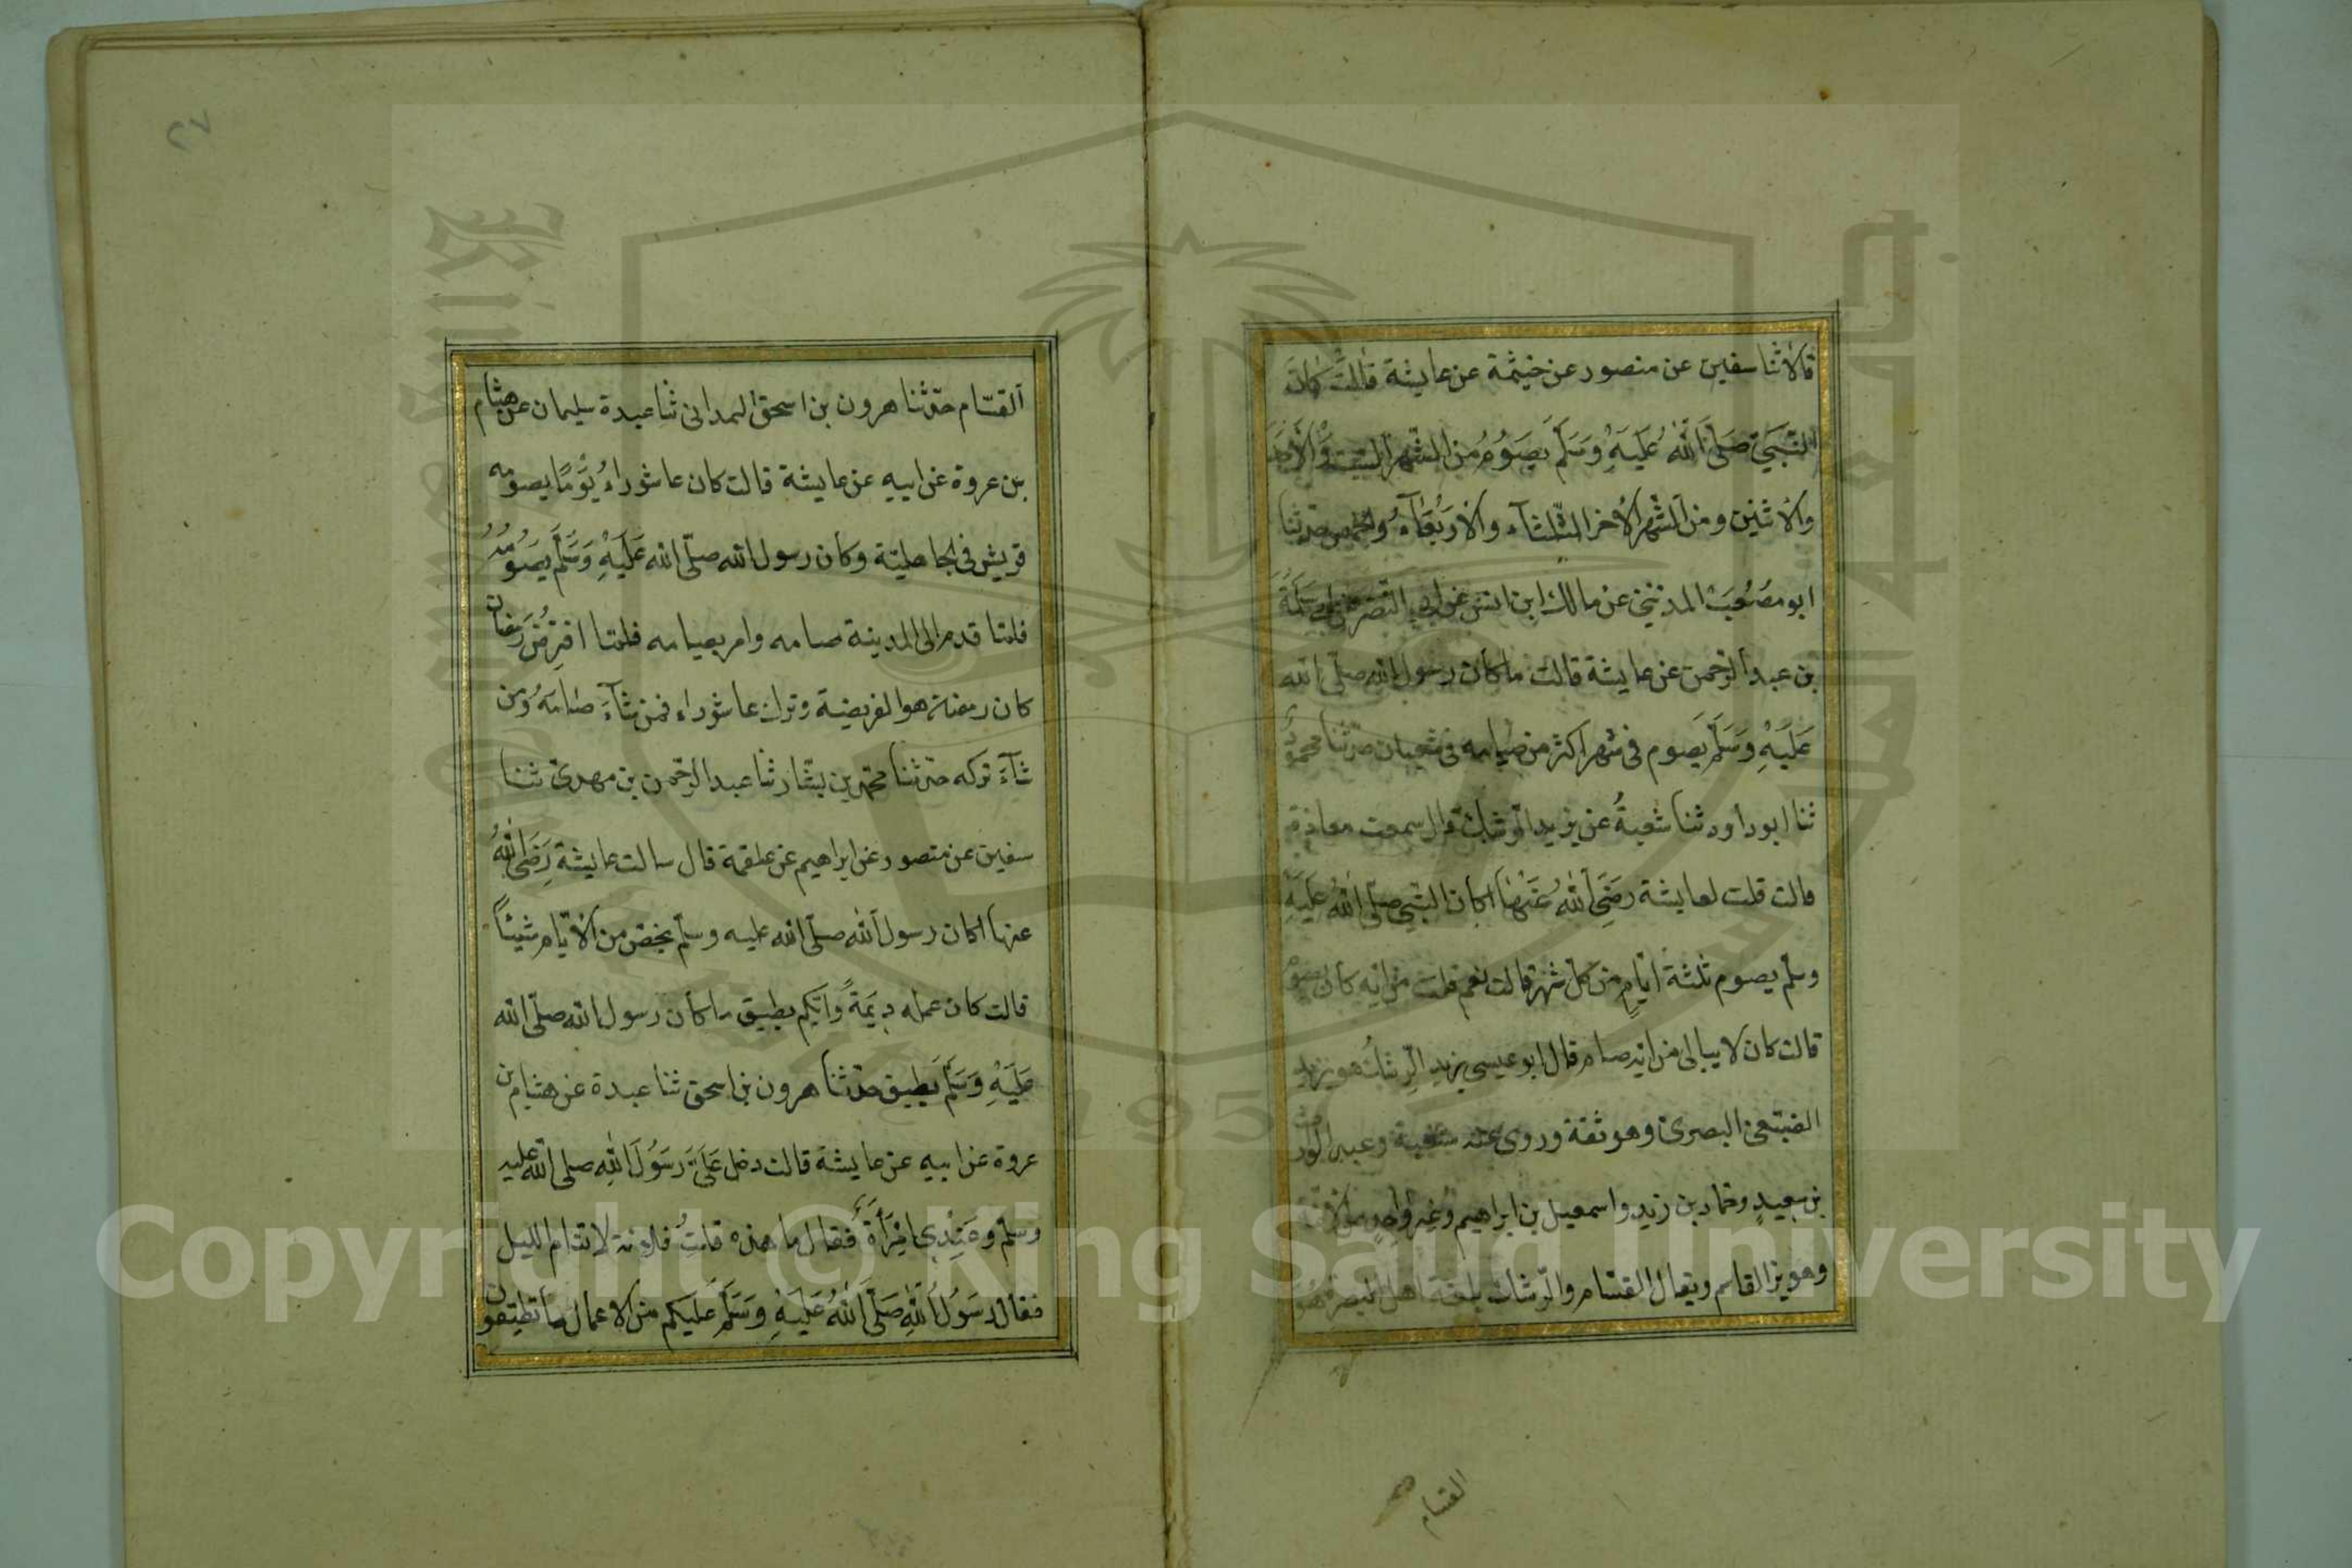 قالا ثنا سفين عن منصور عن خيثمة عن عايشة قالت كان
النَّبِيّ صَلَّى اللّٰهُ عَلَيْهِ وَسَلَّمَ يصَوُمُ من الشّهر السّبت وَالْأَحَد
والاثنين ومن الشهر الأخر الثّلثآء والارْبُعَآءُ والخميس حدثنا
ابو مصْعُبْ المدنيّ عن مالك ابن انس عن ابي النّضر عن ابى سَلَمَةَ
بن عبد الرّحمن عن عايشة قالت ما كان رسول الله صلّى الله
عَلَيْهِ وَسَلَّمَ يَصوم فى شهر اكثر من صيامه فى شعبان حدّثنا محمود
ثنا ابو داود ثنا شعبةُ عن يزيد الرّشك قال سمعت معاذة
قالت قلت لعايشة رضَيَ اللّٰهُ عَنْهَا اكان النّبي صلّى اللهُ عَلَيْهِ
وسلّم يصوم ثلثة ايّامٍ من كلّ شهر قالت نعم قلت من ايّه كان يصوم
قالت كان لا يبالى من ايّه صام قال ابو عيسى يزيد الرِّشكُ هو يزيد
الضبّعىّ البصرىّ وهو ثقة وروى عنه شعبة وعبد الوارث
بن سعيدٍ وحمّاد بن زيدٍ واسمعيل بن ابراهيم وغير واحدٍ من الأئمة
وهو يزيد القاسم ويقال القسّام والرّشك بلغة اهل البصرة هو
القسّام
٢٧
القسّام حدّثنا هرون بن اسحق الهمدانى ثنا عبدة سليمان عن هشام
بن عروة عن ابيهِ عن عايشة قالت كان عاشوراءُ يَوْمًا يصومه
قريش فى الجاهليّة وكان رسول الله صلّى الله عَلَيْهِ وَسَلَّمَ يصَوُمُهُ
فلمّا قدم الى المدينة صامه وامر بصيامه فلمّا افتِرُضَ رَمضان
كان رمضان هو الفريضة وترك عاشوراء فمن شآءَ صَامَهُ وَمن
شآءَ تركه حدّثنا محمّد بن بشّار ثنا عبد الرّحمن بن مهدىّ ثنا
سفين عن منصور عن ابراهيم عن علقمة قال سالت عايشة رَضَيَ اللّٰهُ
عنها اكان رسول اللّٰه صلّى الله عليه وسلّم يخصّ من الأيّام شيئاً
قالت كان عمله دِيَمَةً وَايّكم يطيق ما كان رسول الله صلّى الله
عَلَيْهِ وَسَلَّمَ يطيق حدّثنا هرون بن اسحق ثنا عبدة عن هشام بن
عروة عن ابيه عن عايشة قالت دخل عَلَىَّ رَسُولُ اللّٰهِ صلى اللّٰه عليه
وسلّم وَعَنِدِى امْرَأَةٌ فقال ما هذه قلتُ فلانة لا تنام الليل
فقال رسَوُلُ اللّٰهِ صَلَّى اللّٰهُ عَلَيْهِ وَسَلَّمَ عَلَيكم من الاعمال ما تطيقون
Copyright © King Saud University